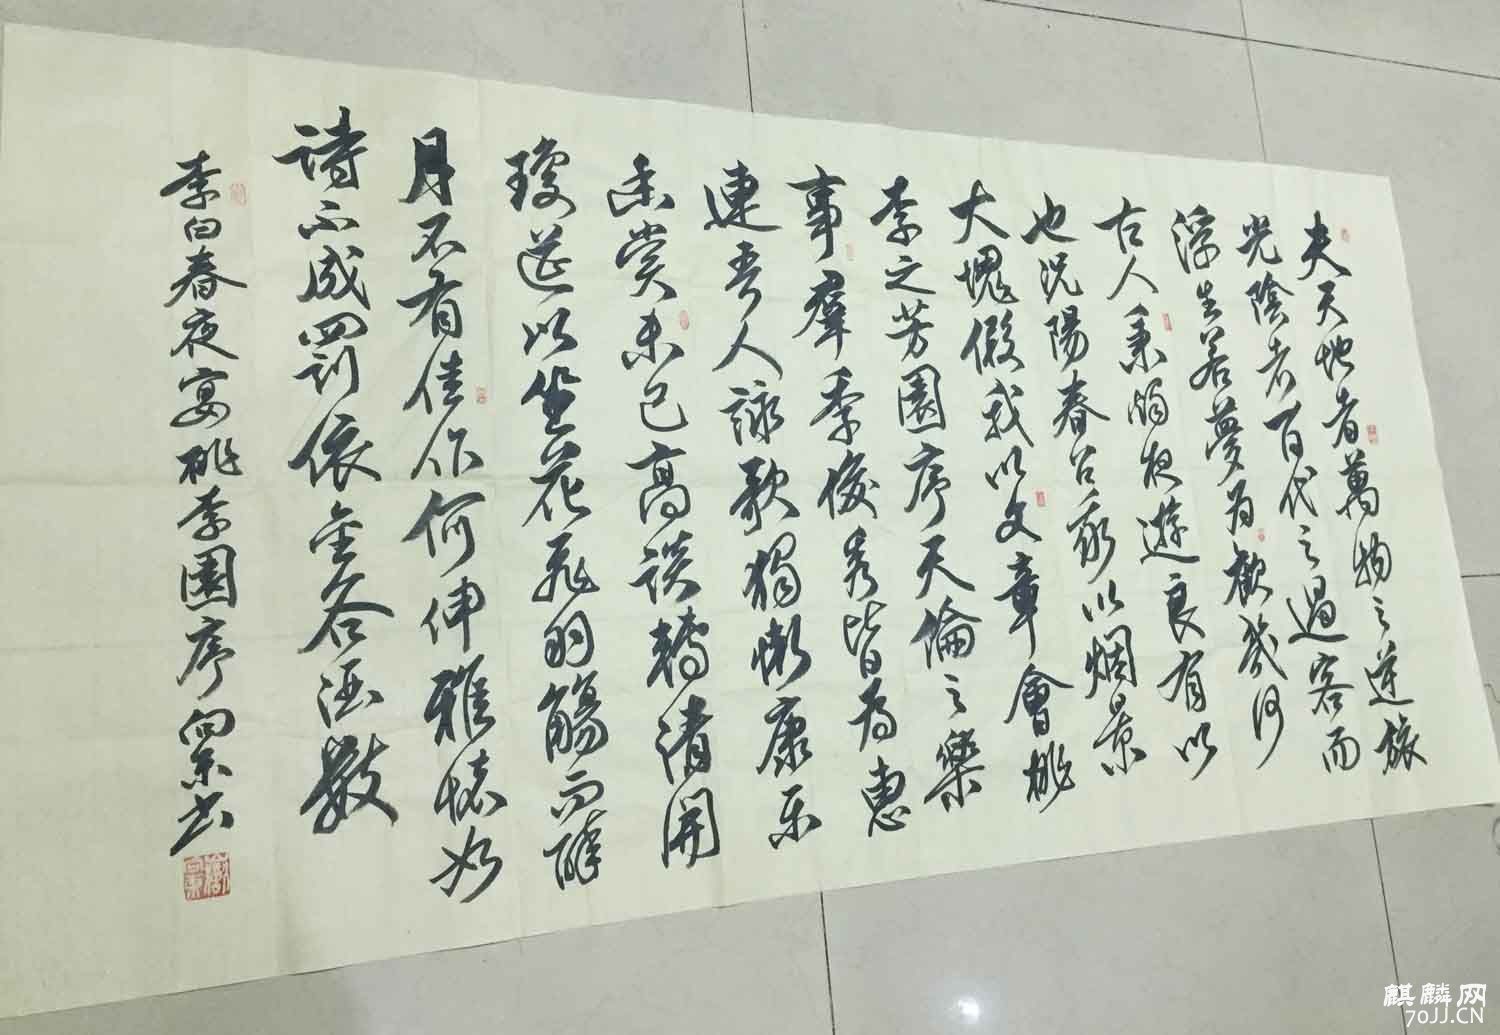 夫天地者萬物之逆旅
光陰者百代之過客而
浮生若夢为歡幾何
古人秉燭夜遊良有以
也况陽春召我以烟景
大塊假我以文章會桃
李之芳園序天倫之樂
事羣季俊秀皆为惠
連吾人詠歌獨慚康乐
幽赏未已高談轉清開
瓊筵以坐花飛羽觴而醉
月不有佳作何伸雅懷如
詩不成罰依金谷酒數
李白春夜宴桃李園序
麒麟网
70JJ.CN